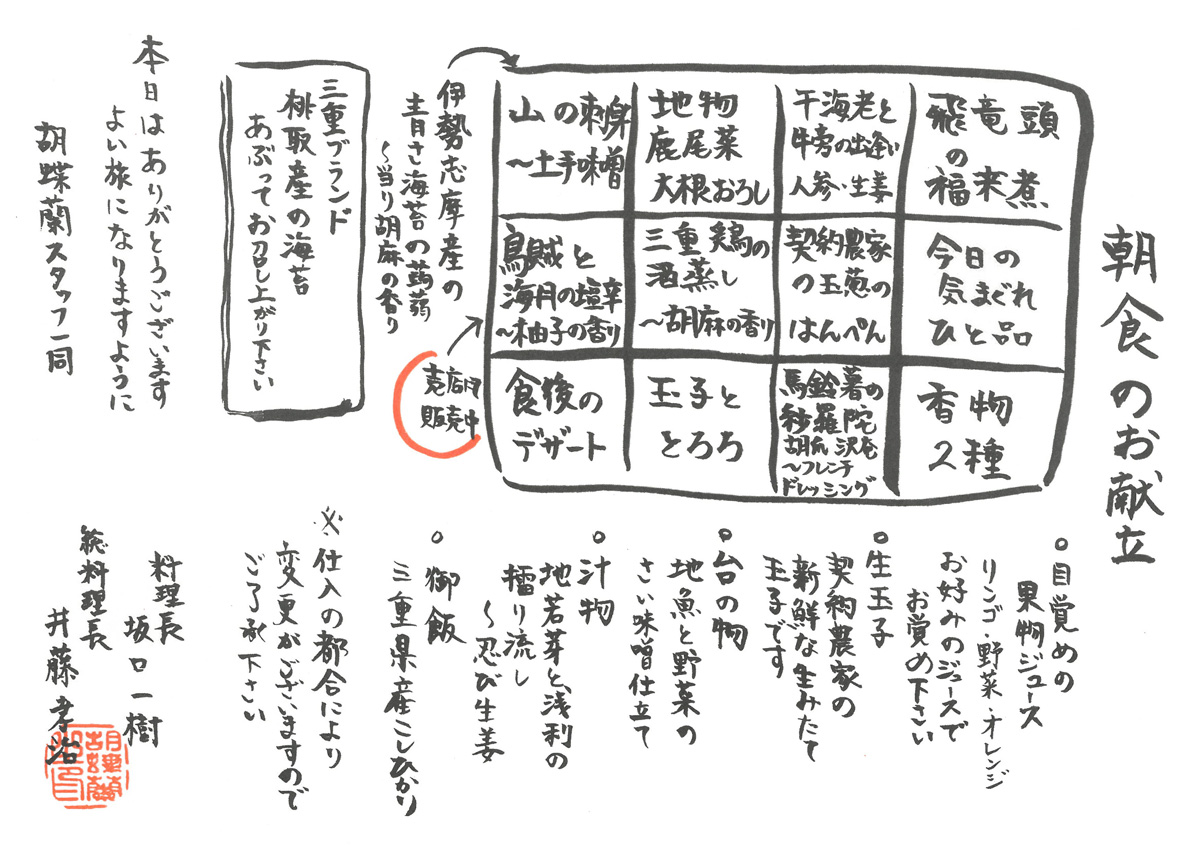 朝食のお献立
飛竜頭
の
福来煮
干海老と
牛旁の出逢い
人参・生姜
地物
鹿尾菜
大根おろし
山の刺身
～土手味噌
今日の
気まぐれ
ひと品
契約農家
の玉葱の
はんぺん
三重鶏の
酒蒸し
～胡麻の香り
烏賊と
海月の塩辛
～柚子の香り
香物
2種
馬鈴薯の
秒羅陀
胡瓜 沢庵
～フレンチ
ドレッシング
玉子と
とろろ
食後の
デザート
伊勢志摩産の
青さ海苔の蒟蒻
～当り胡麻の香り
売店用
販売中
三重ブランド
桃取産の海苔
あぶってお召し上がり下さい
本日はありがとうございます
よい旅になりますように
胡蝶蘭スタッフ一同
○目覚めの
果物ジュース
リンゴ・野菜・オレンジ
お好みのジュースで
お覚め下さい
○生玉子
契約農家の
新鮮な生みたて
玉子です
○台の物
地魚と野菜の
さい味噌仕立て
○汁物
地若芽と浅利の
擂り流し
～忍び生姜
○御飯
三重県産こしひかり
※仕入の都合により
変更がございますので
ご了承下さい
料理長
坂口一樹
総料理長
井藤孝治